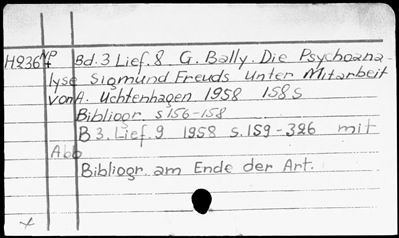 H236 NP Bd. 3 Lief. 8 G. Bally. Die Psychoana-
4 lyse Sigmund Freuds unter Mitarbeit
von A. Uchtenhagen 1958 158 S
Bibliogr. S 156-158
B 3. Lief. 9 1958 S. 159-326 mit
Abb
Bibliogr. am Ende der Art.
x